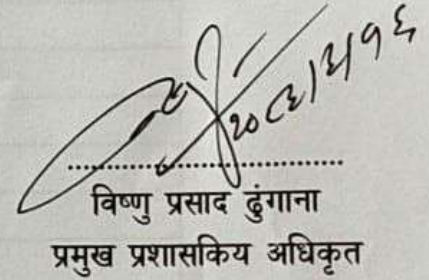 २०८२/३/१६
विष्णु प्रसाद ढुंगाना
प्रमुख प्रशासकिय अधिकृत